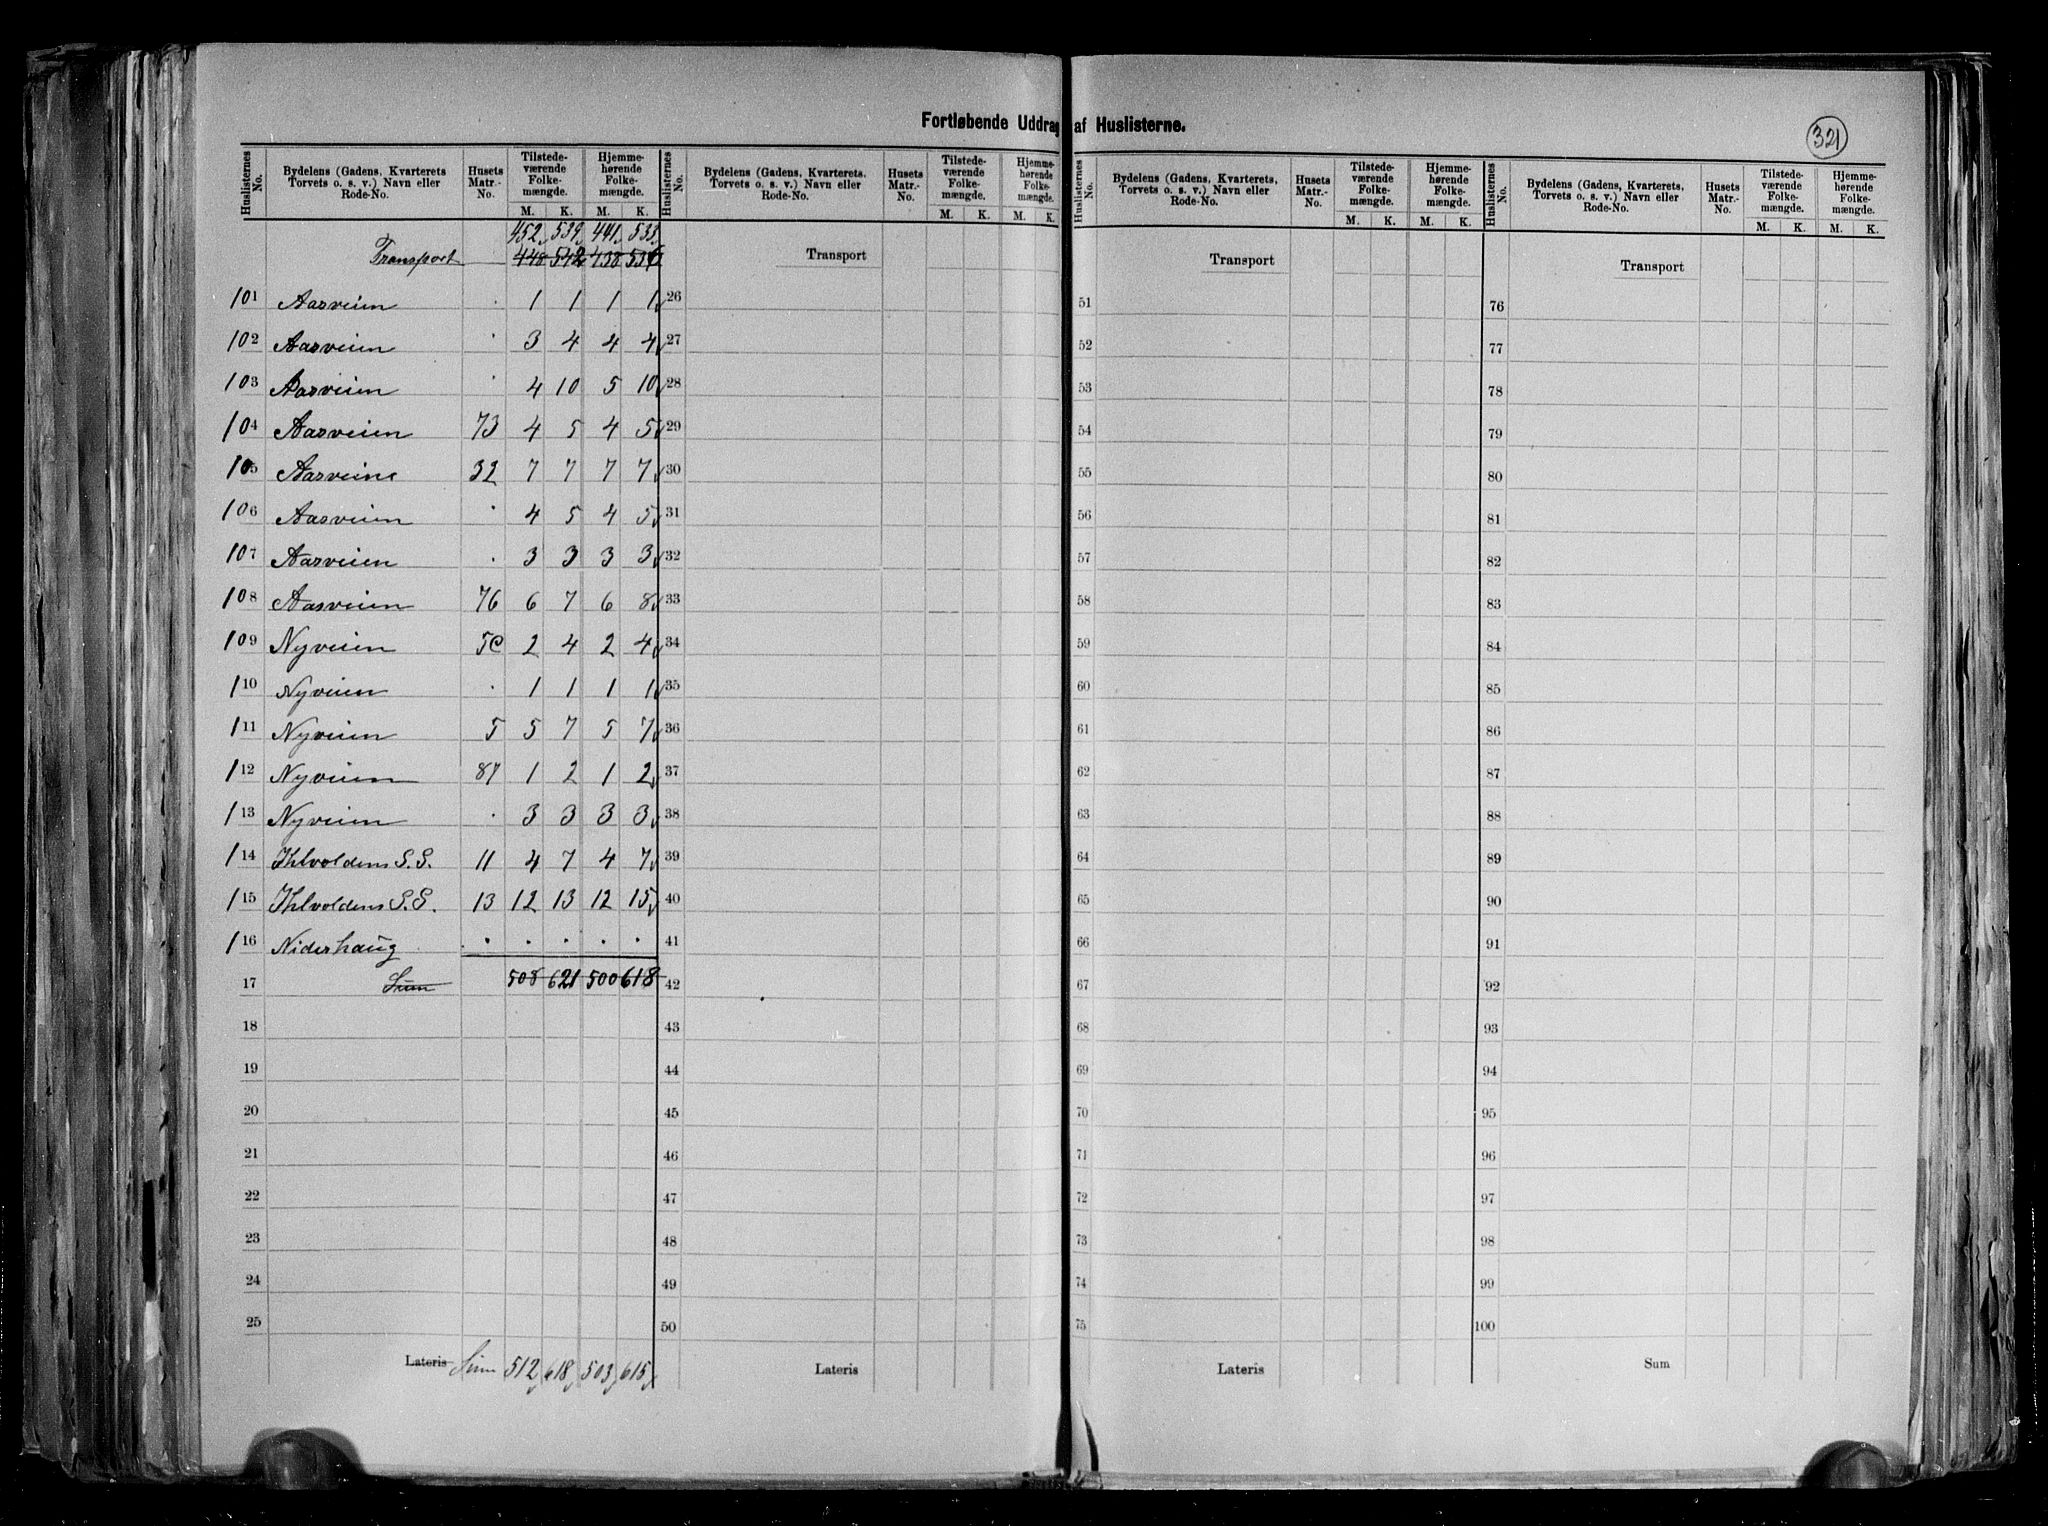 Fortløbende Uddrag af Huslisterne.
321
Huslisternes No. Bydelens (Gadens, Kvarterets Torvets o. s. v.) Navn eller Rode-No. Husets Matr.-No. Tilstede-værende Folke-mængde. M. K. Hjemme-hørende Folke-mængde. M. K.
452 539 441 533
Transport 448 542 438 536
101 Aasveien . 1 1 1 1
102 Aasveien . 3 4 4 4
103 Aasveien . 4 10 5 10
104 Aasveien 73 4 5 4 5
105 Aasveine 32 7 7 7 7
106 Aasveien . 4 5 4 5
107 Aasveien . 3 3 3 3
108 Aasveien 76 6 7 6 8
109 Nyveien 5c 2 4 2 4
110 Nyveien . 1 1 1 1
111 Nyveien 5 5 7 5 7
112 Nyveien 87 1 2 1 2
113 Nyveien . 3 3 3 3
114 Ihlvoldens S. G. 11 4 7 4 7
115 Ihlvoldens S. G. 13 12 13 12 15
116 Niderhaug . . . . .
17 Sum 508 621 500 618
18
19
20
21
22
23
24
25
Lateris Sum 512 618 503 615
Huslisternes No. Bydelens (Gadens, Kvarterets, Torvets o. s. v.) Navn eller Rode-No. Husets Matr.-No. Tilstede-værende Folke-mængde. M. K. Hjemme-hørende Folke-mængde. M. K.
Transport
26
27
28
29
30
31
32
33
34
35
36
37
38
39
40
41
42
43
44
45
46
47
48
49
50
Lateris
Huslisternes No. Bydelens (Gadens, Kvarterets, Torvets o. s. v.) Navn eller Rode-No. Husets Matr.-No. Tilstede-værende Folke-mængde. M. K. Hjemme-hørende Folke-mængde. M. K.
Transport
51
52
53
54
55
56
57
58
59
60
61
62
63
64
65
66
67
68
69
70
71
72
73
74
75
Lateris
Huslisternes No. Bydelens (Gadens, Kvarterets, Torvets o. s. v.) Navn eller Rode-No. Husets Matr.-No. Tilstede-værende Folke-mængde. M. K. Hjemme-hørende Folke-mængde. M. K.
Transport
76
77
78
79
80
81
82
83
84
85
86
87
88
89
90
91
92
93
94
95
96
97
98
99
100
Sum